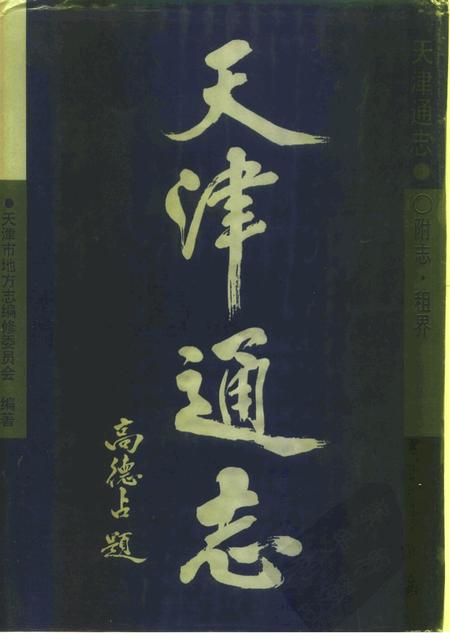 天津通志
高德占题
天津通志●〇附志·租界
●天津市地方志编修委员会 编著